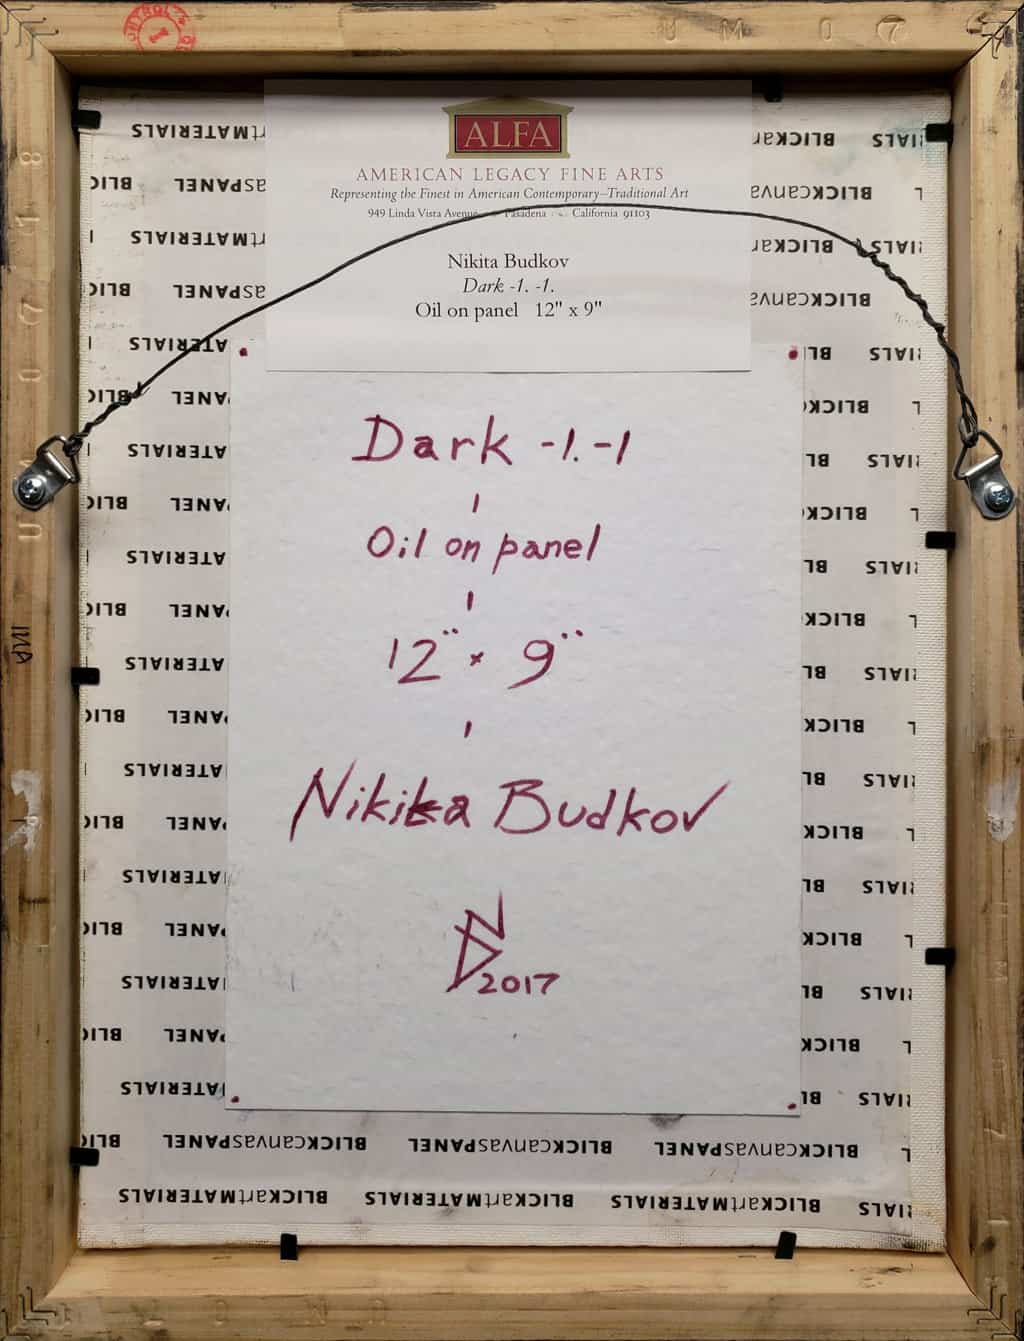 ALFA
AMERICAN LEGACY FINE ARTS
Representing the Finest in American Contemporary–Traditional Art
949 Linda Vista Avenue Pasadena California 91103
Nikita Budkov
Dark -1. -1.
Oil on panel 12" x 9"
Dark -1. -1
Oil on panel
12" x 9"
Nikita Budkov
2017
BLICKcanvasPANEL BLICKcanvasPANEL BLICKcanvasPANEL
BLICKartMATERIALS BLICKartMATERIALS BLICKartMATERIALS